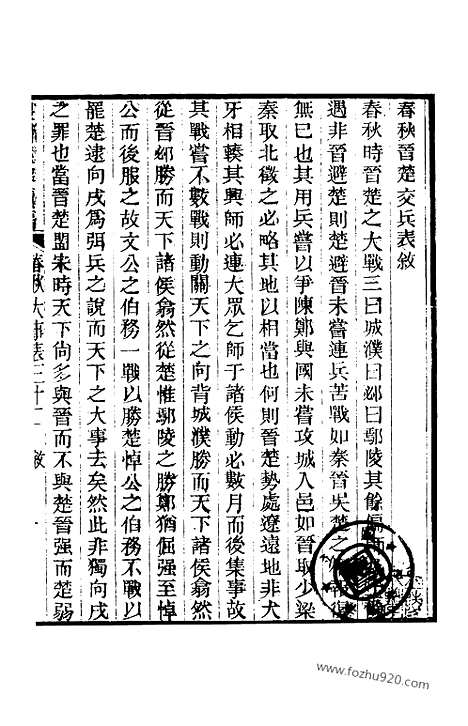 春秋晉楚交兵表敘
春秋時晉楚之大戰三曰城濮曰邲曰鄢陵其餘偏師
遇非晉避楚則楚避晉未嘗連兵苦戰如秦晉吳楚之
無已也其用兵嘗以爭陳鄭與國未嘗攻城入邑如晉取少梁
秦取北徵之必略其地以相當也何則晉楚勢處遼遠地非犬
牙相轃其興師必連大眾乞師于諸侯動必數月而後集事故
其戰嘗不數戰則動關天下之向背城濮勝而天下諸侯翕然
從晉邲勝而天下諸侯翕然從楚惟鄢陵之勝鄭猶倔強至悼
公而後服之故文公之伯務一戰以勝楚悼公之伯務不戰以
罷楚逮向戌為弭兵之說而天下之大事去矣然此非獨向戌
之罪也當晉楚盟宋時天下尙多與晉而不與楚晉强而楚弱
春秋大事表三十二 敘 一
www.fozhu920.com